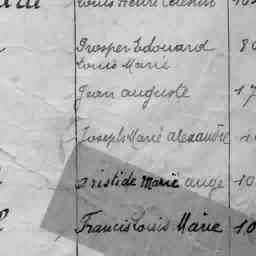 Louis Henri
Prosper Edouard 80
Louis Marié
Jean auguste 17
Joseph Marié alexandre
aristide Marié ange 10
Francis Louis Marie 10